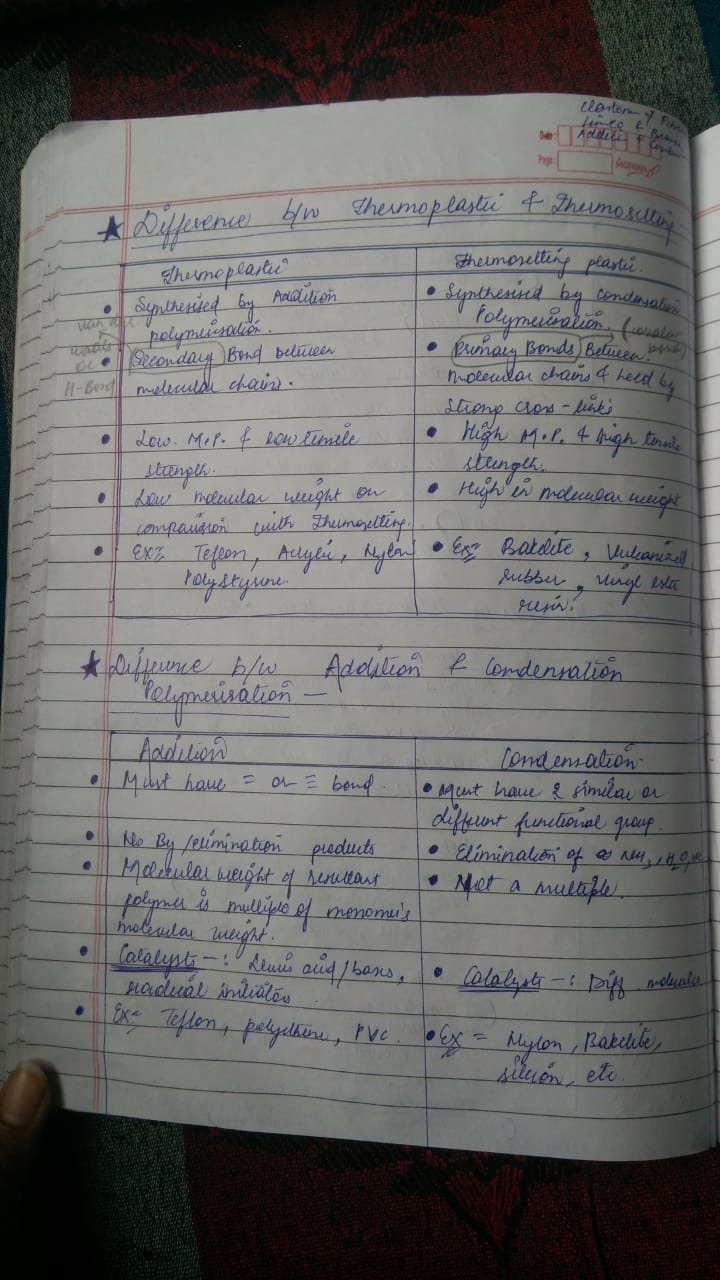 Elastom & Fibre
linea & Branc
Additi & Conden
Date:
Page:
★ Difference b/w Thermoplastic & Thermosetting
Thermoplastic
Thermosetting plastic.
• Synthesised by Addition
polymerisation.
• Synthesised by condensation
Polymerisation. (covalent
bond)
van der
waals
or
H-Bond
• Secondary Bond between
molecular chains.
• Primary Bonds Between
molecular chains & held by
strong cross-links
• Low. M.P. & low tensile
strength.
• High M.P. & high tensile
strength.
• Low molecular weight on
comparision with Thermosetting.
• High in molecular weight
• Ex = Teflon, Acrylic, Nylon
Polystyrene.
• Ex = Bakelite, Vulcanized
rubber, vinyl ester
resin.
★ Difference b/w Addition & Condensation
Polymerisation —
Addition
Condensation.
• Must have = or ≡ bond.
• Must have 2 similar or
different functional group.
• No By/elimination products
• Elimination of NH3, H2O,
• Molecular weight of resultant
polymer is multiple of monomer's
molecular weight.
• Not a multiple.
• Catalysts —: Lewis acid/bases,
radical initiators.
• Catalyst —: Diff. molecules
• Ex = Teflon, polythene, PVC.
• Ex = Nylon, Bakelite,
silicon, etc.